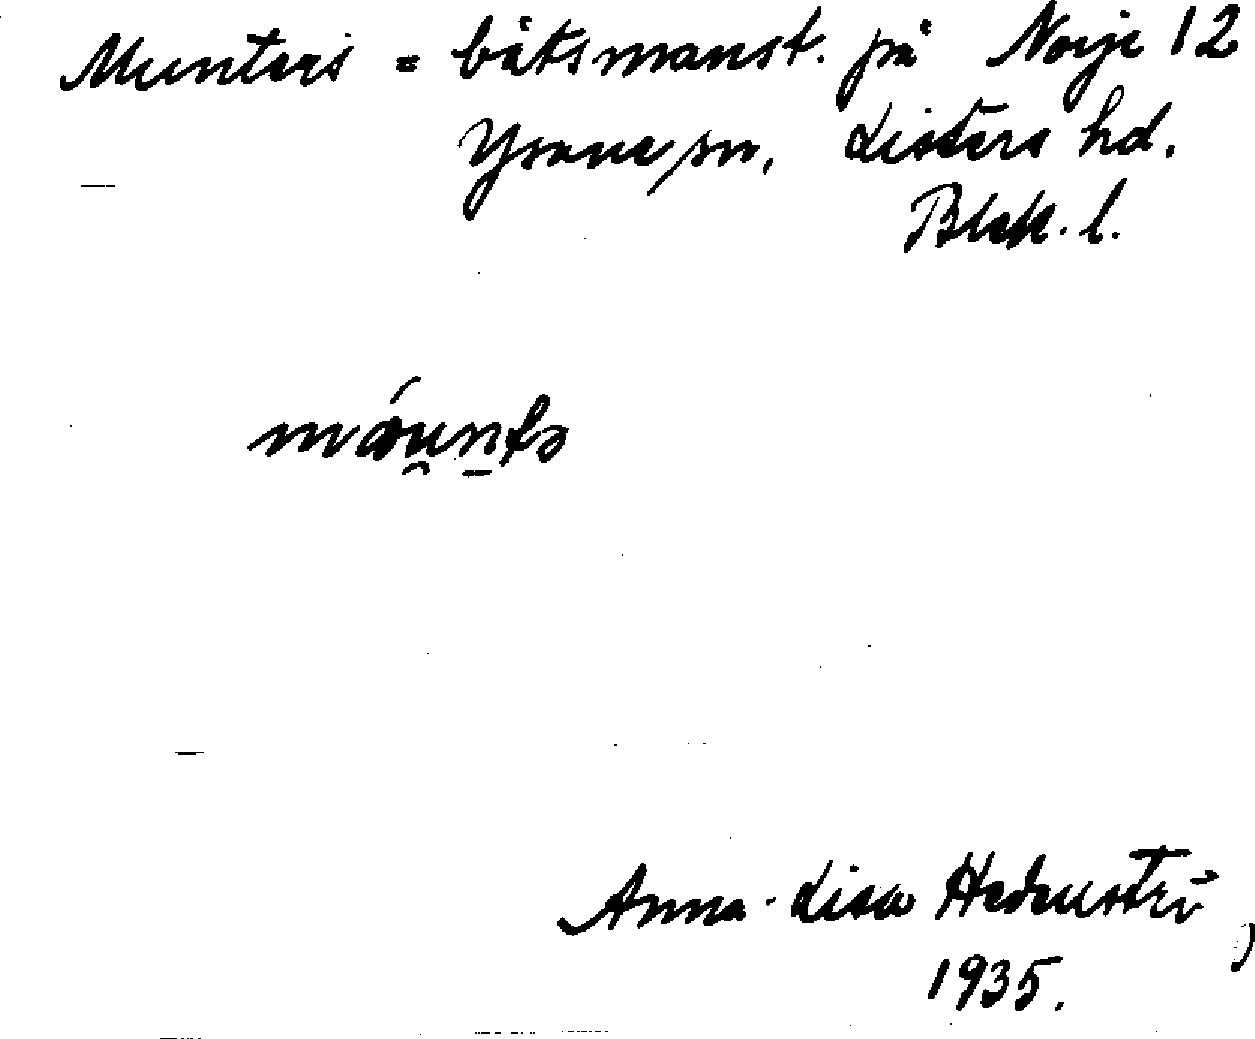 Munters = båtsmanst. på Norje 12
Ysane sn, Listers hd.
Blek. l.
móu̯n̠tə
Anna-Lisa Hedenströ
1935.